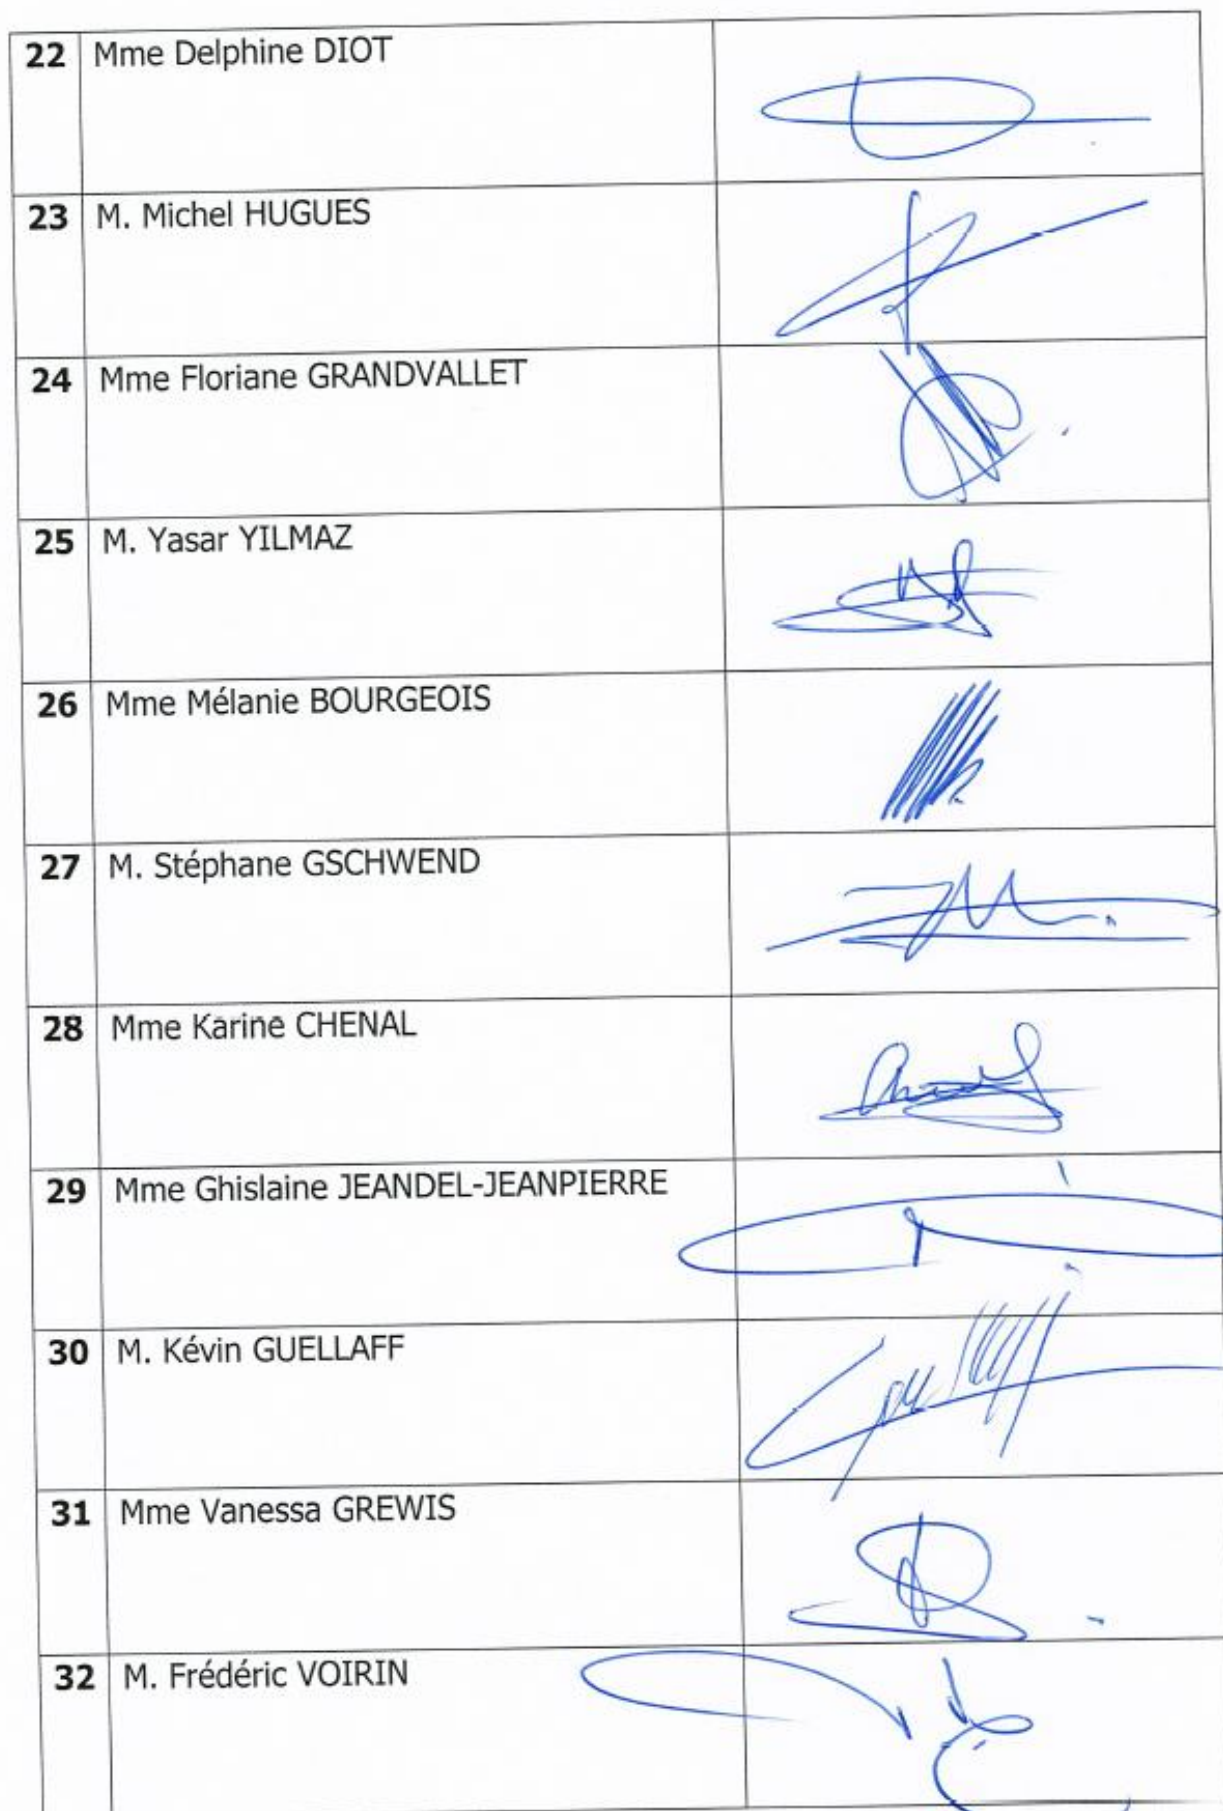 22 Mme Delphine DIOT
23 M. Michel HUGUES
24 Mme Floriane GRANDVALLET
25 M. Yasar YILMAZ
26 Mme Mélanie BOURGEOIS
27 M. Stéphane GSCHWEND
28 Mme Karine CHENAL
29 Mme Ghislaine JEANDEL-JEANPIERRE
30 M. Kévin GUELLAFF
31 Mme Vanessa GREWIS
32 M. Frédéric VOIRIN